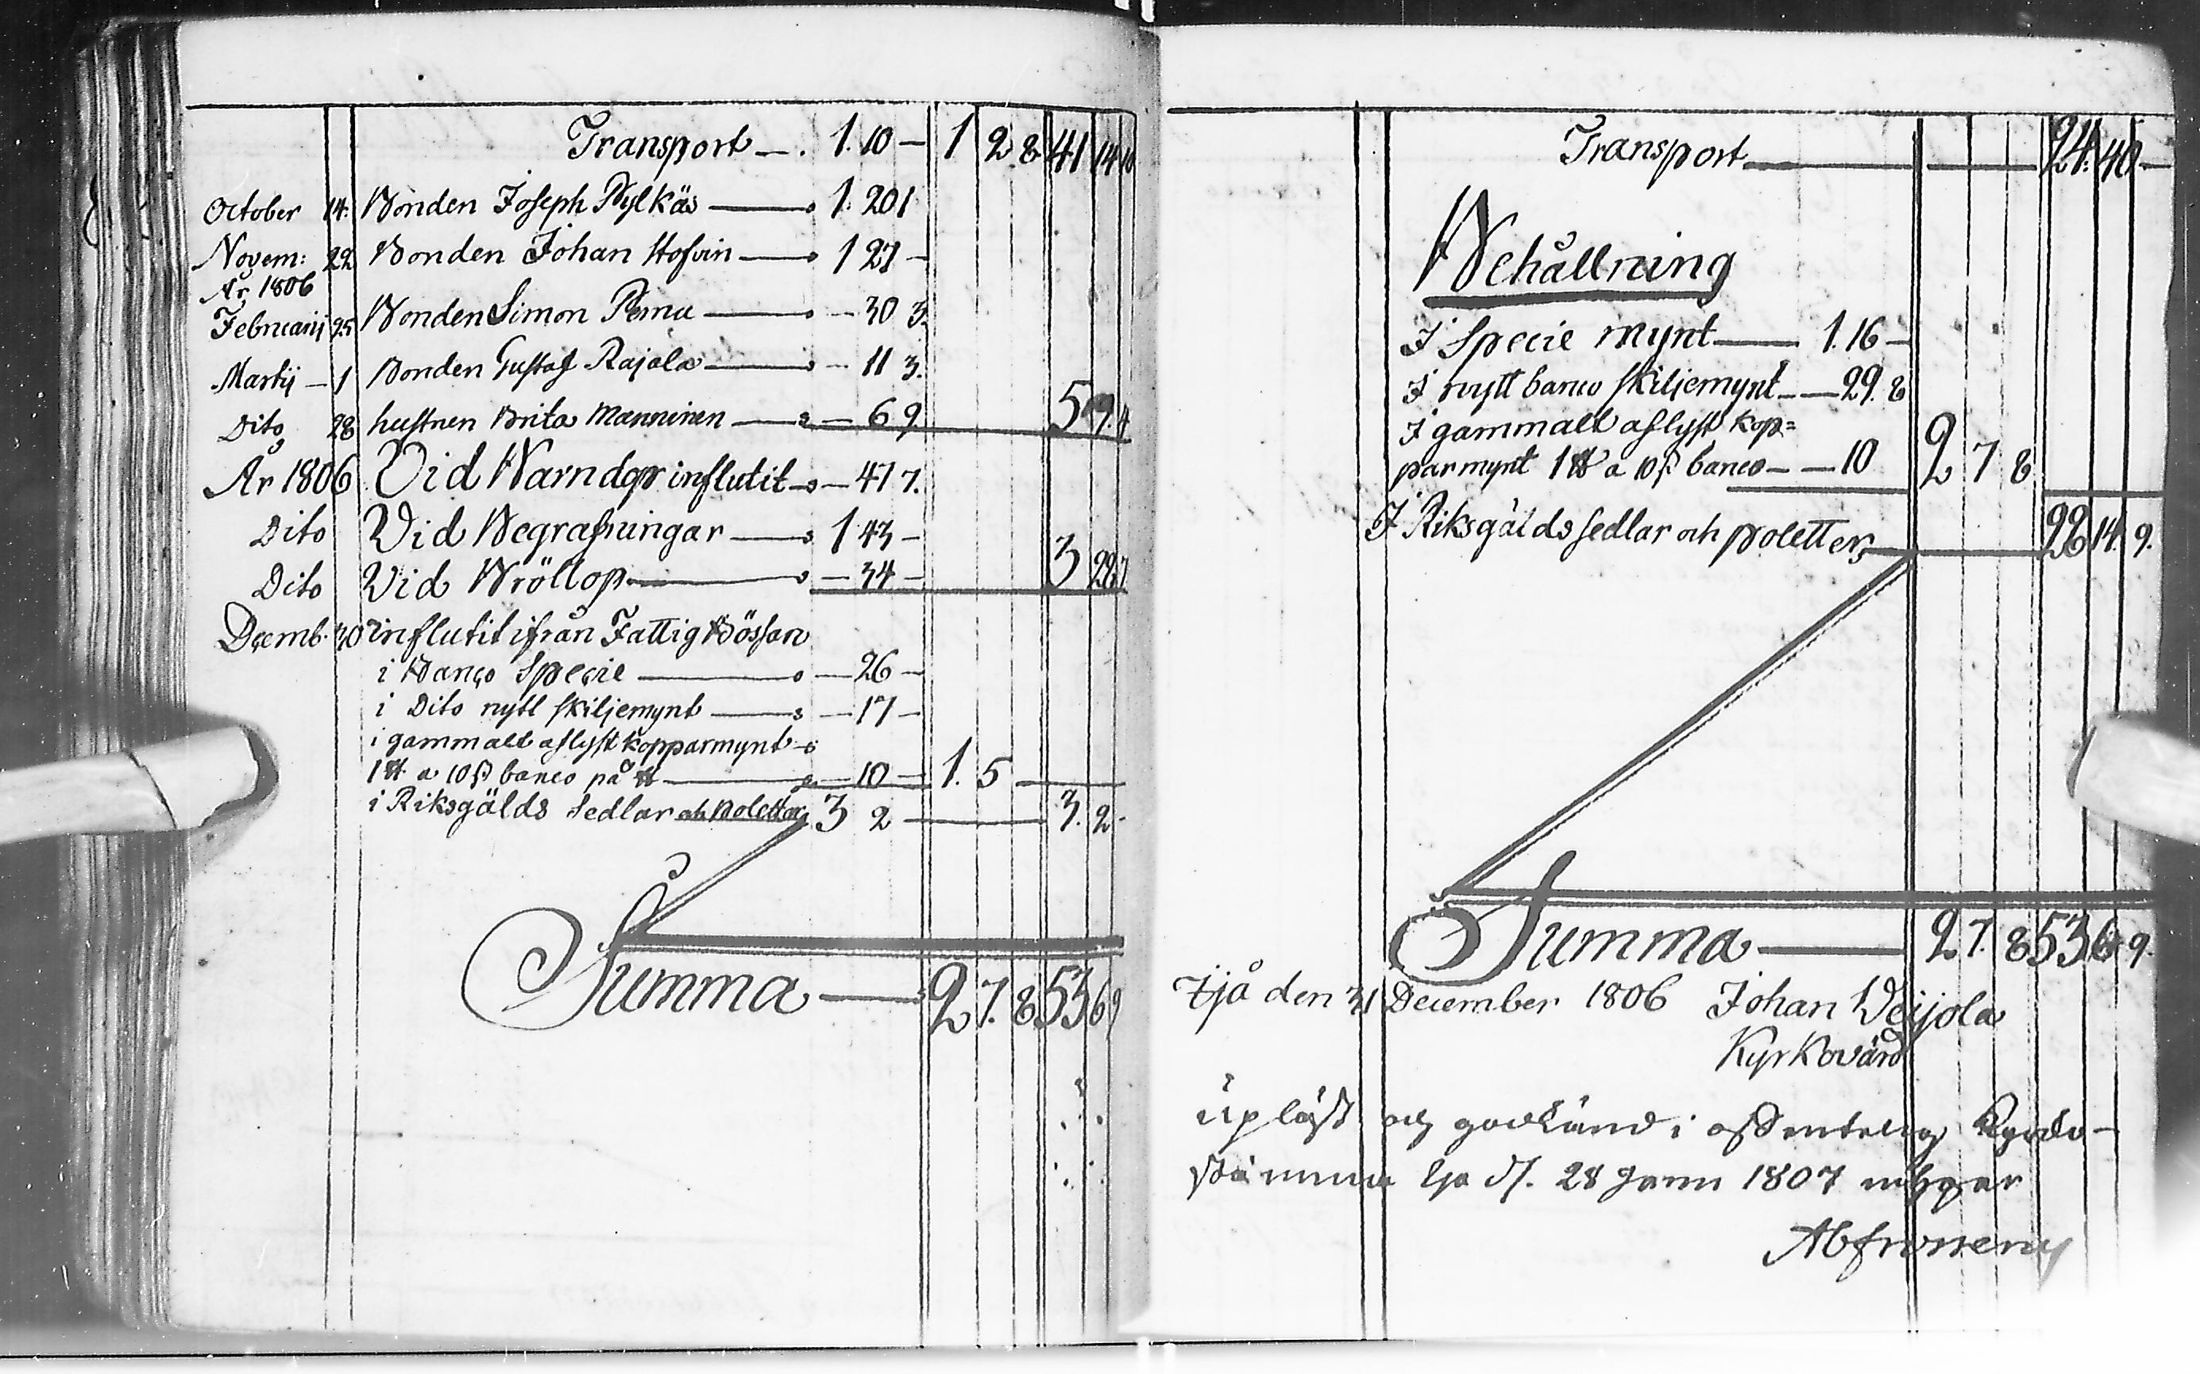 Transport — 1. 10 — 1 2 8 41 14 10
October 14. Bonden Joseph Pylkäs — 1. 20 1
Novem: 22 Bonden Johan Hosvin — 1 27 —
År 1806
Februarij 25 Bonden Simon Pernu — 30 3.
Martij — 1 Bonden Gustaf Rajala — 11 3.
Dito 28 hustrun Brita Manninen — 6 9. 5 9. 4
År 1806 Vid Barndop influtit — 47 7.
Dito Vid Begrafningar — 1 43 —
Dito Vid Bröllop — 34 — 3 29. 7
Decemb. 30 influtit ifrån Fattig Bössan
i Banco Specie — 26 —
i Dito nytt skiljemynt — 17 —
i gammalt aflyst kopparmynt
1 ℔ a 10 ß banco på ℔ — 10 — 1. 5 —
i Riksgälds Sedlar och Poletter 3 2 — 3. 2 —
Summa — 2 7. 8 53 6 9
Transport — 24. 40 —
Behållning
I Specie mynt — 1. 16 —
I nytt banco skiljemynt — 29. 8
I gammalt aflyst kop=
parmynt 1 ℔ a 10 ß banco — 10 2 7 8
I Riksgälds sedlar och poletter — 28 14. 9.
Summa — 2 7. 8 53 6 9.
Ijå den 31 December 1806 Johan Veijola
Kyrkovärd
Upläst och godkänd i offentelig Kyrko-
stämma Ijo d. 28 Janu 1807